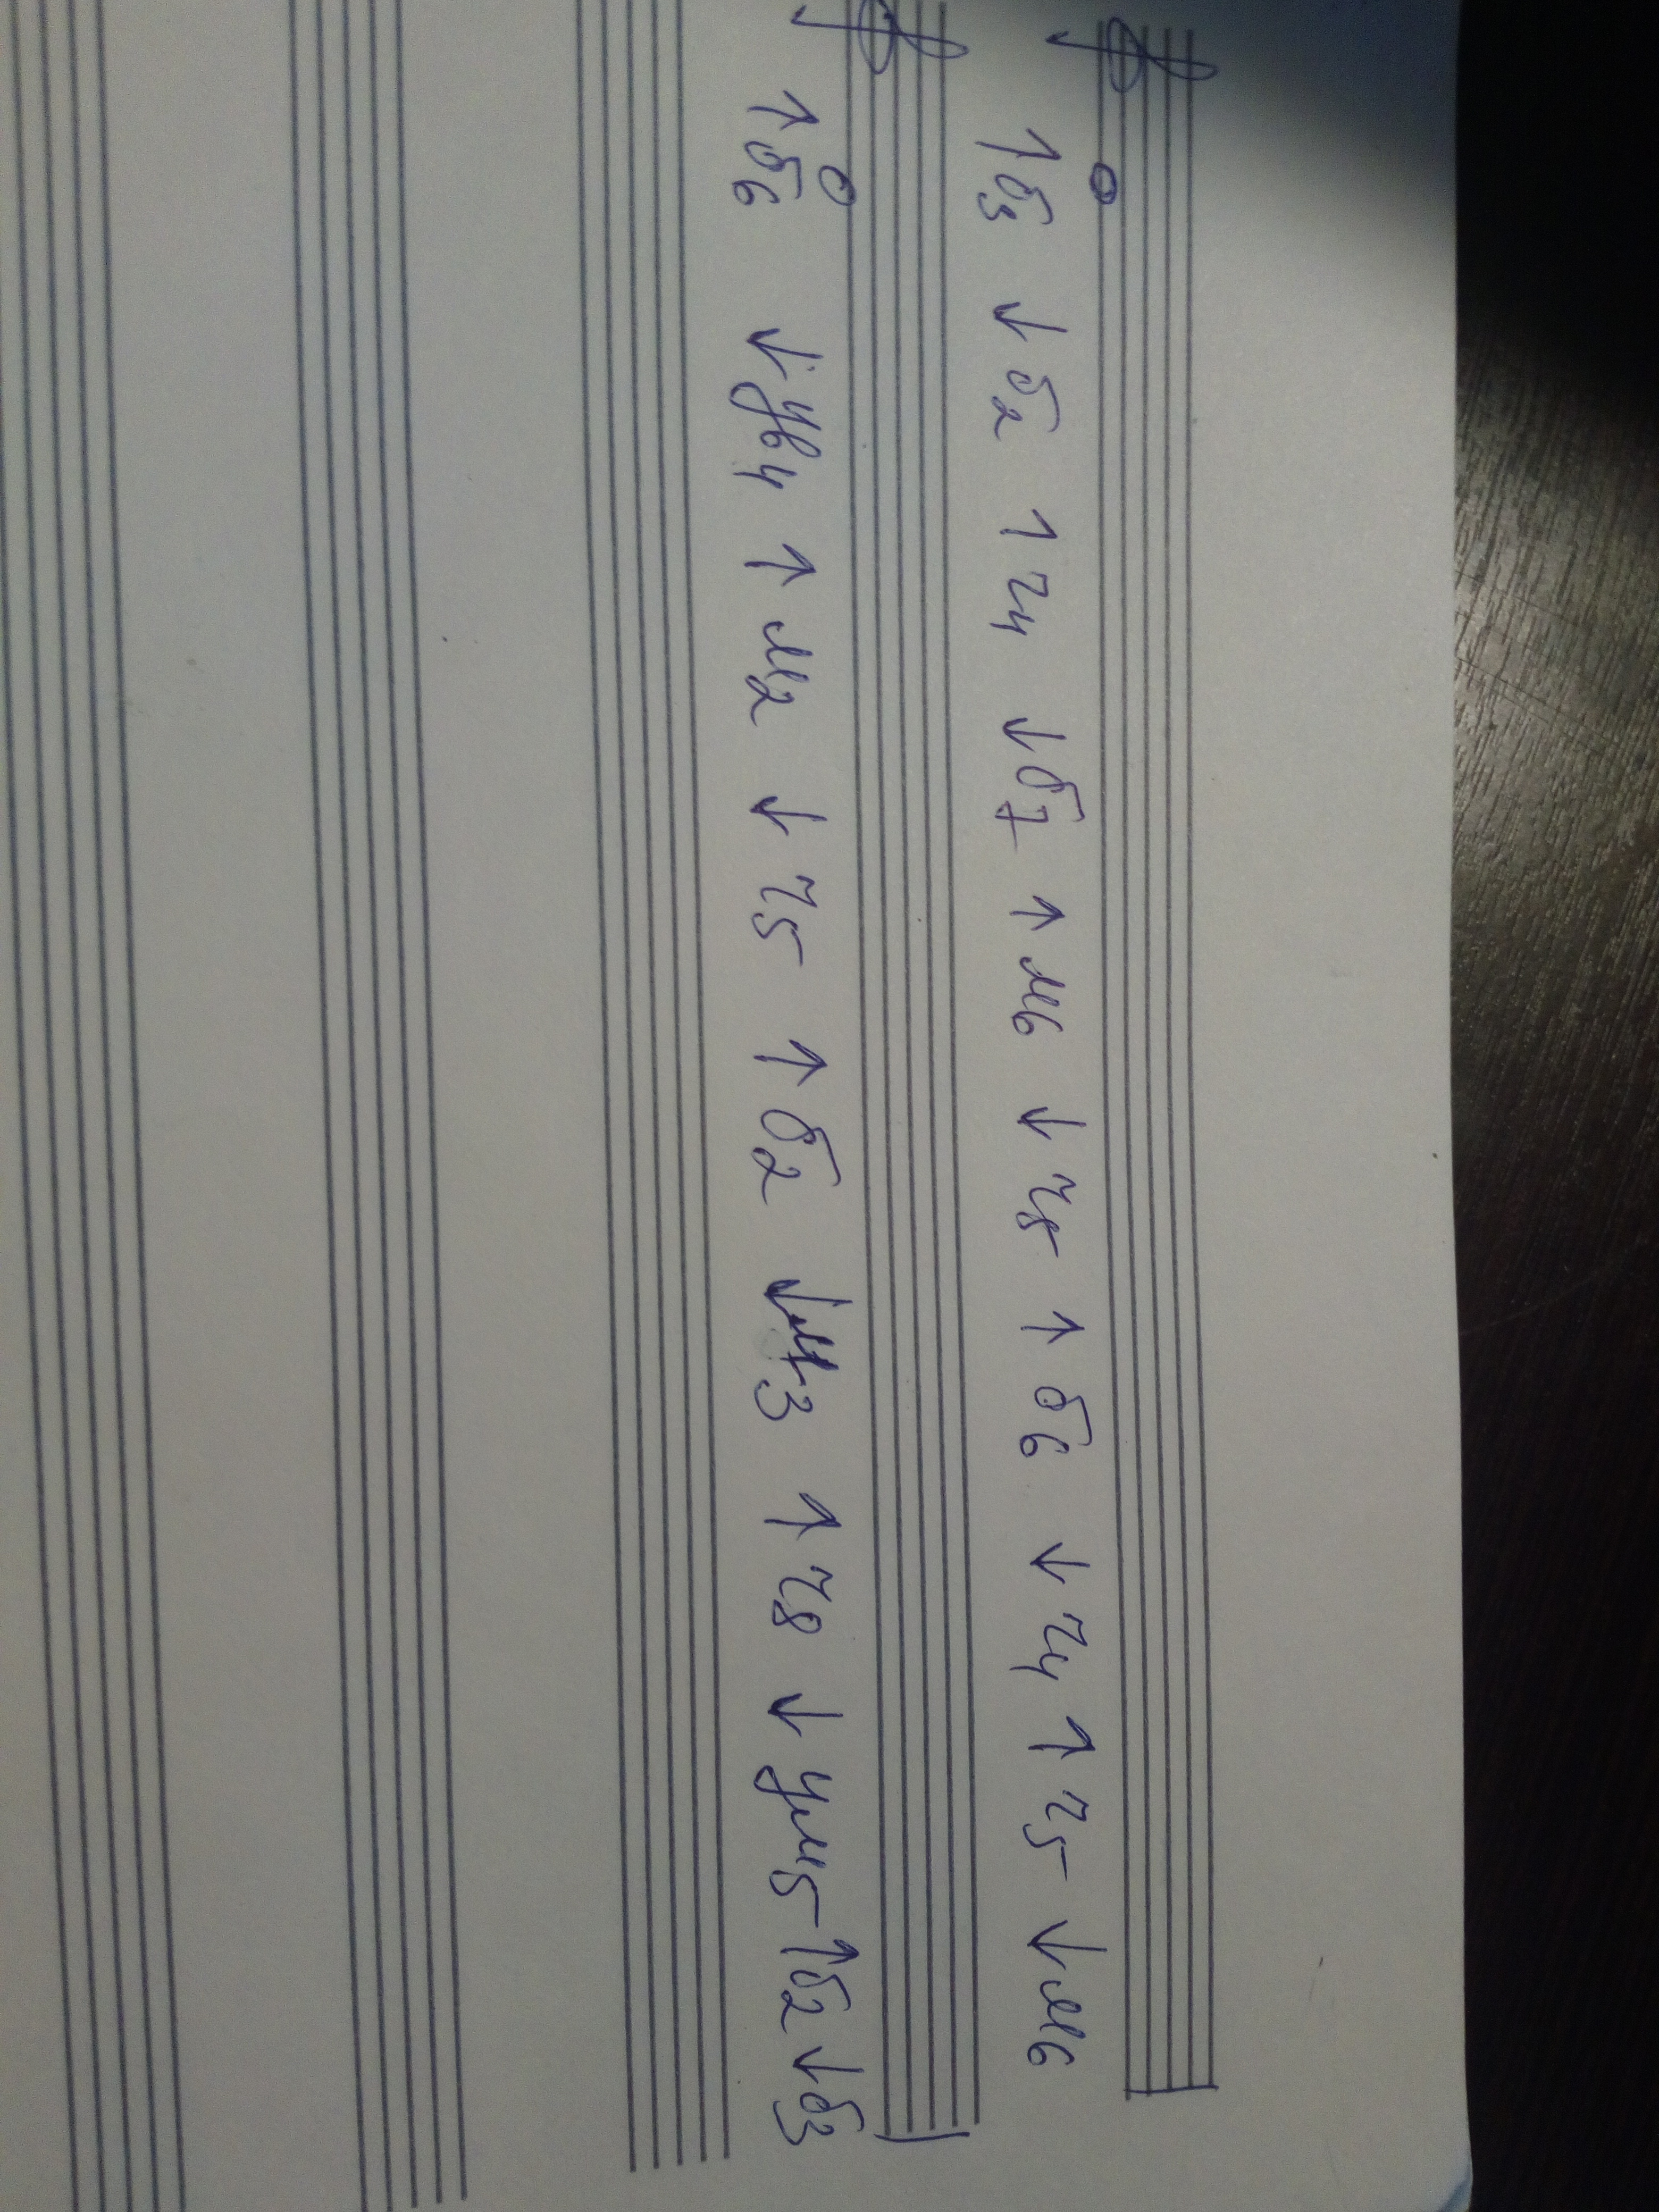 ↑ б3 ↓ б2 ↑ ч4 ↓ б7 ↑ м6 ↓ ч8 ↑ б6 ↓ ч4 ↑ ч5 ↓ м6
↑ б6 ↓ ув4 ↑ м2 ↓ ч5 ↑ б2 ↓ м3 ↑ ч8 ↓ ум5 ↑ б2 ↓ б3